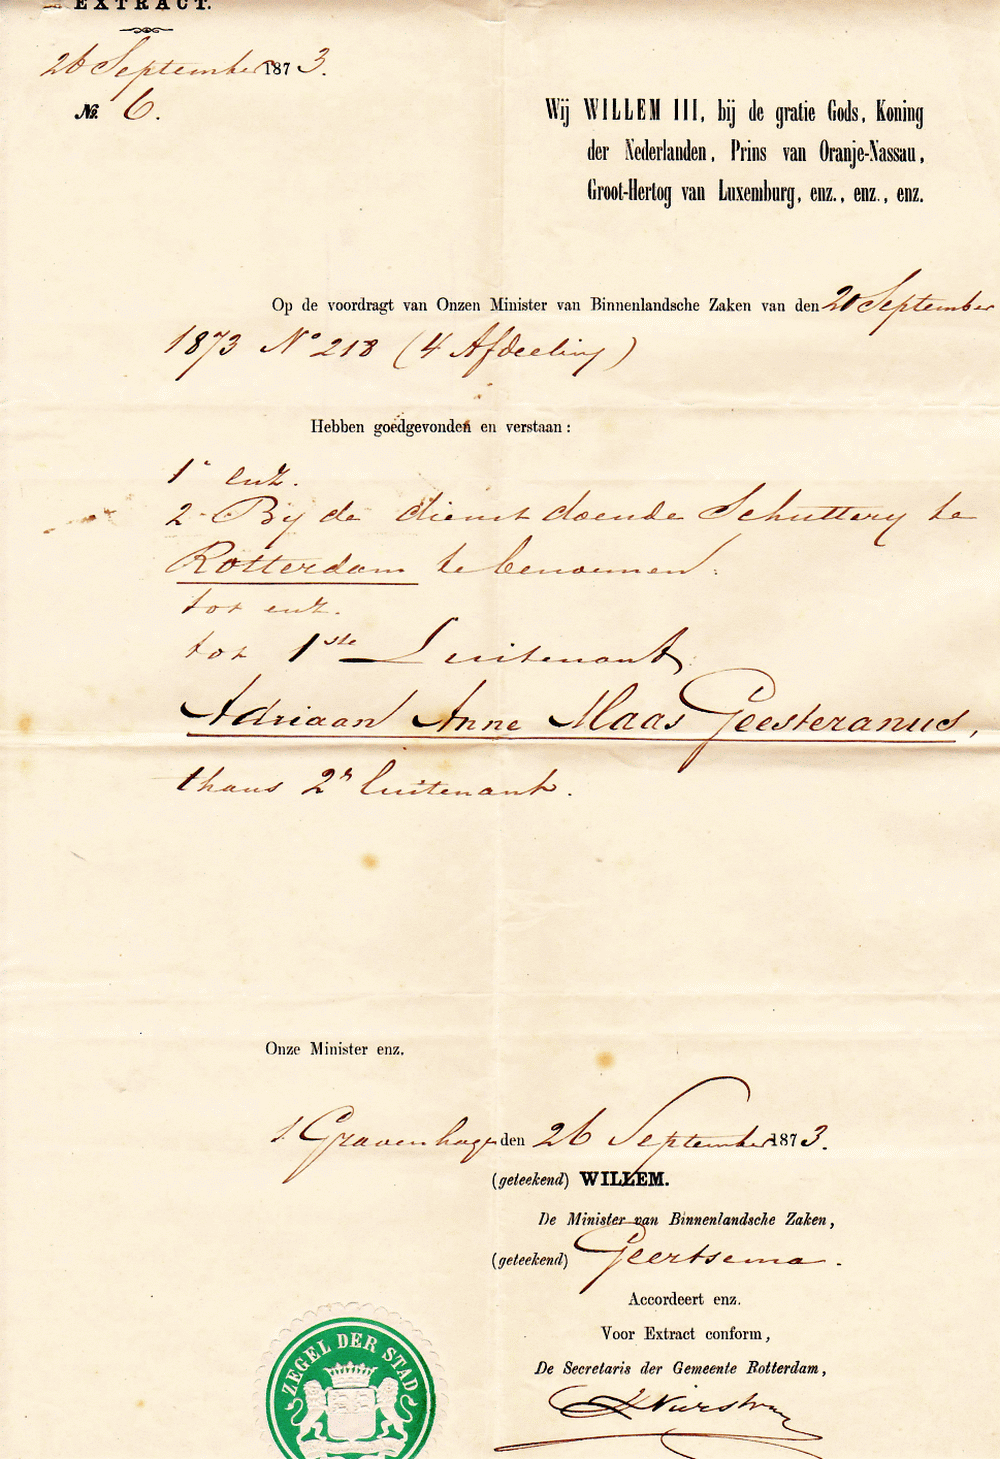 EXTRACT.
26 September 1873.
No. 6.
Wij WILLEM III, bij de gratie Gods, Koning
der Nederlanden, Prins van Oranje-Nassau,
Groot-Hertog van Luxemburg, enz., enz., enz.
Op de voordragt van Onzen Minister van Binnenlandsche Zaken van den 20 September
1873 No 218 (4 Afdeeling)
Hebben goedgevonden en verstaan:
1o enz.
2o Bij de dienstdoende Schuttery te
Rotterdam te benoemen:
tot enz.
tot 1ste Luitenant
Adriaan Anne Maas Geesteranus,
thans 2e luitenant.
Onze Minister enz.
s Gravenhage den 26 September 1873.
(geteekend) WILLEM.
De Minister van Binnenlandsche Zaken,
(geteekend) Geertsema.
Accordeert enz.
Voor Extract conform,
De Secretaris der Gemeente Rotterdam,
ZEGEL DER STAD